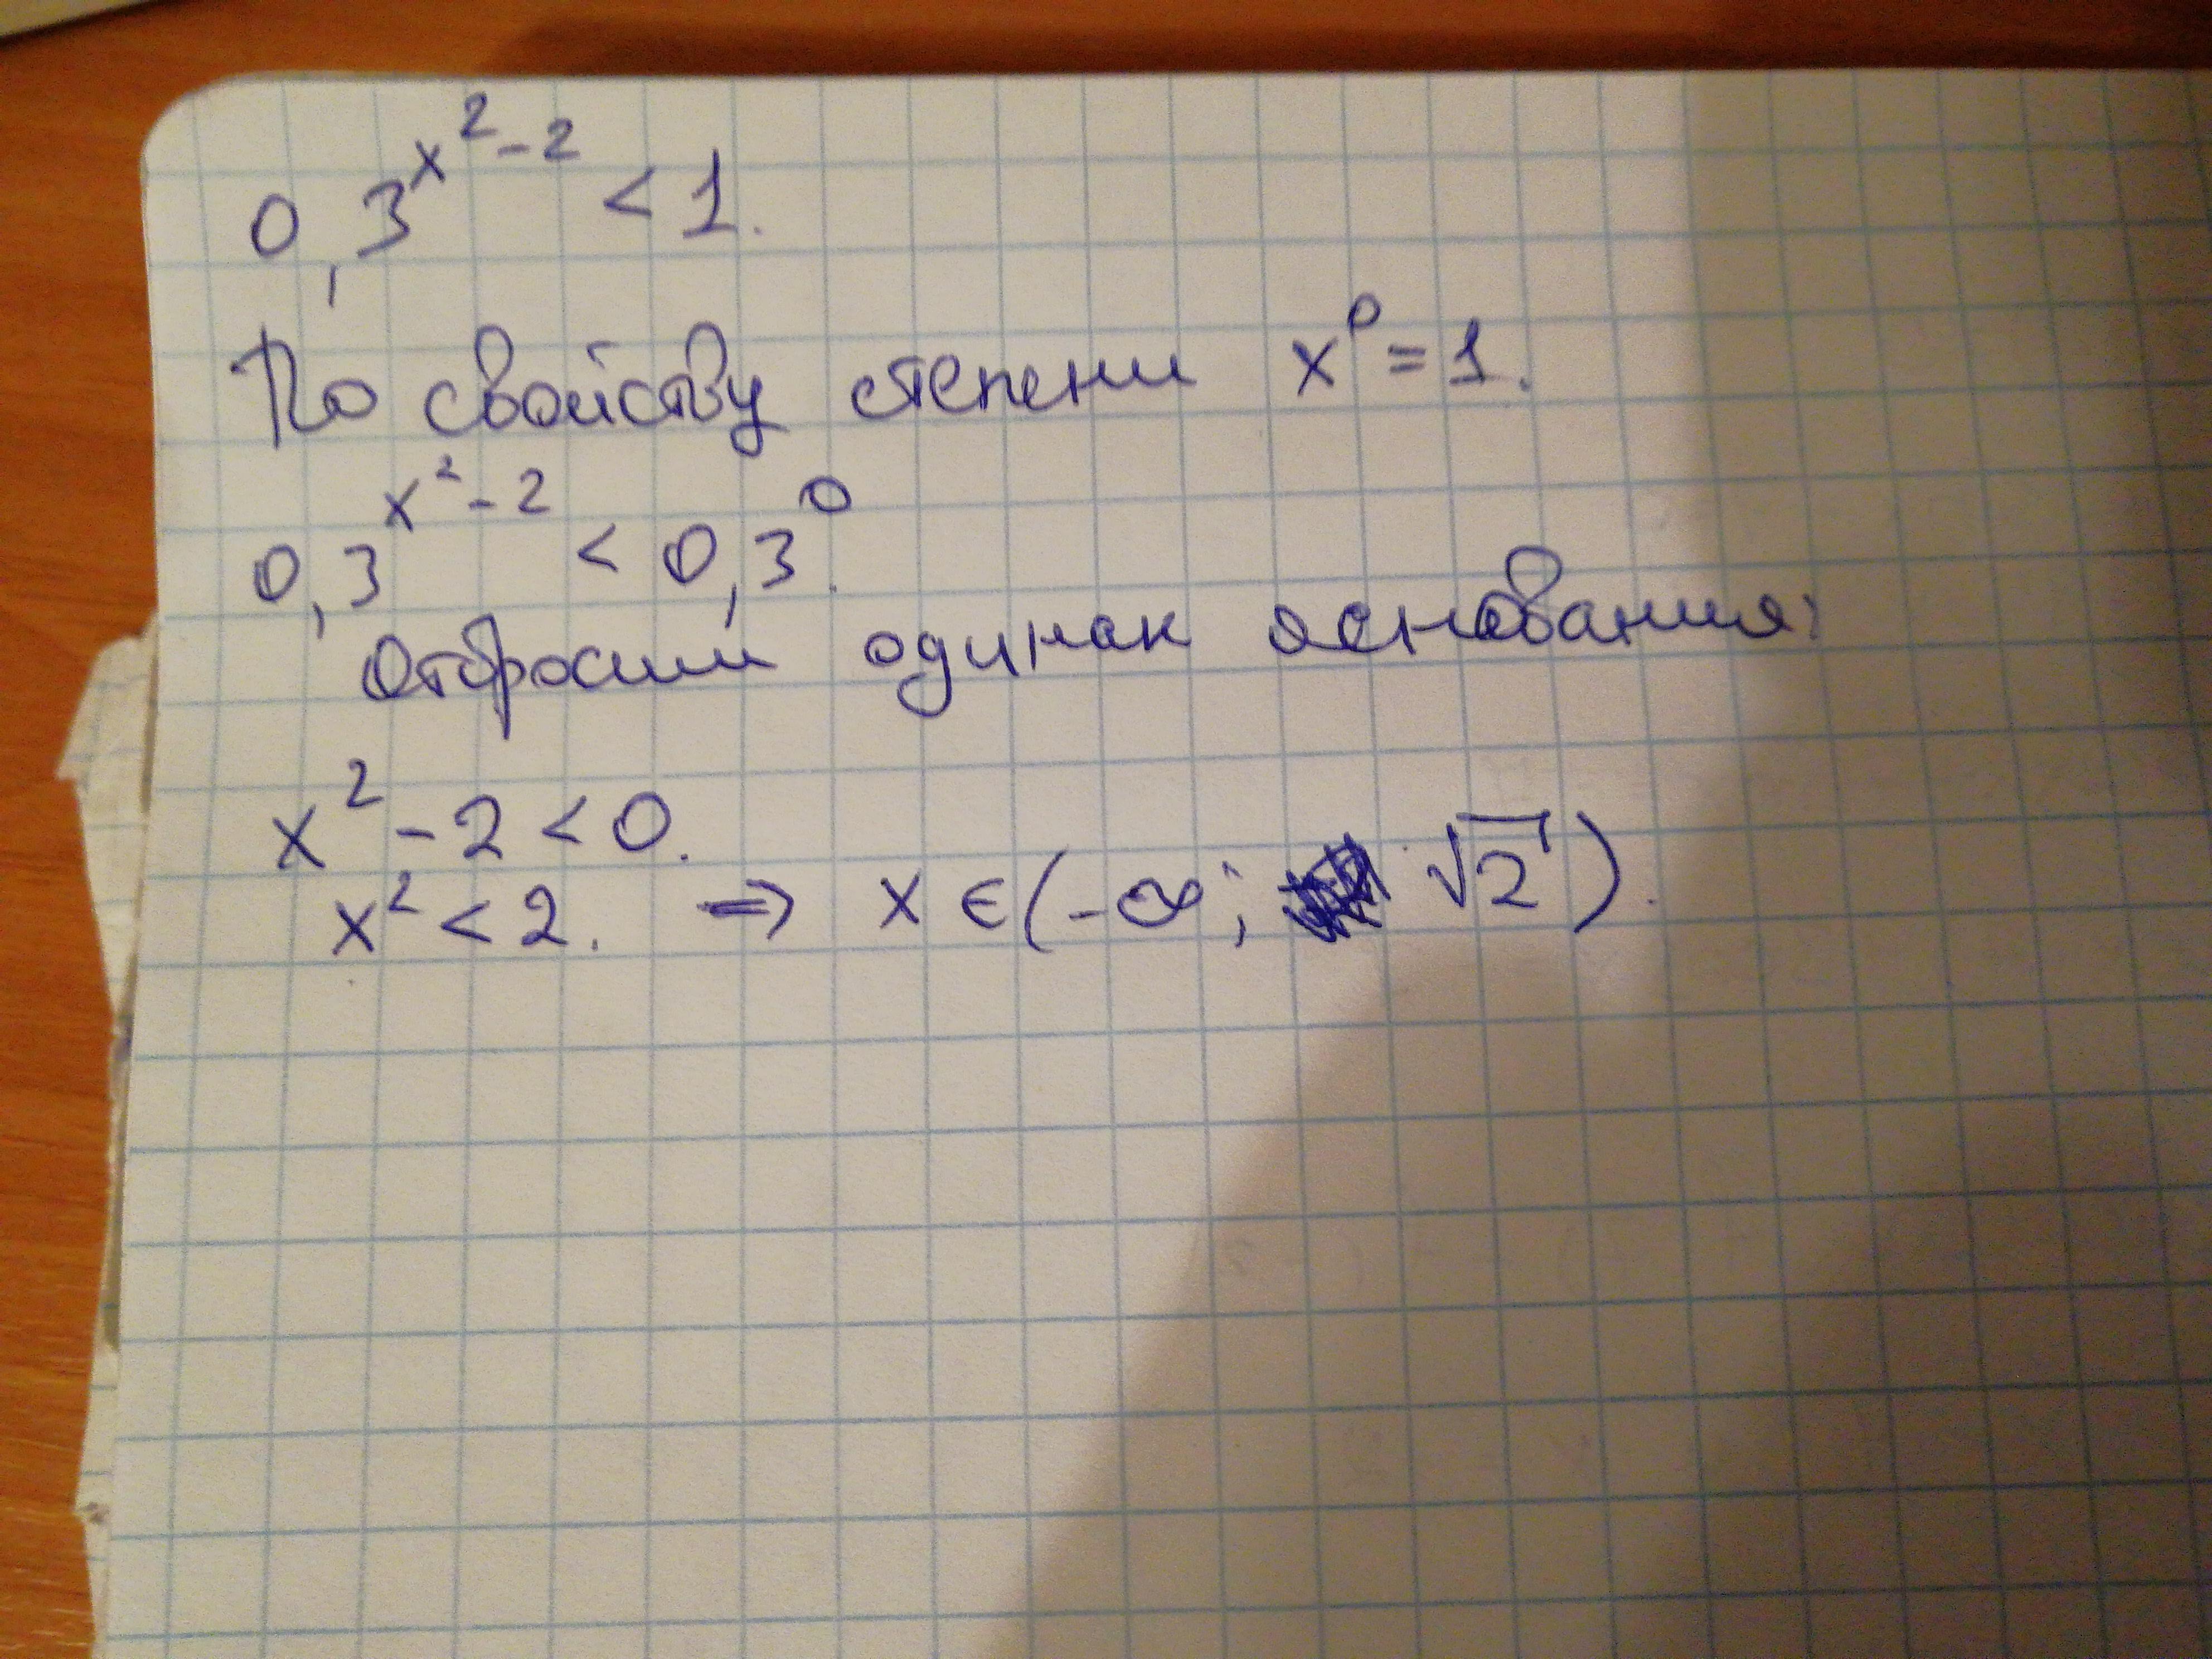 0,3^{x^2-2} < 1.
По свойству степени x^0 = 1.
0,3^{x^2-2} < 0,3^0.
Отбросим одинак основания:
x^2 - 2 < 0.
x^2 < 2. ⇒ x ∈ (-∞; √2).